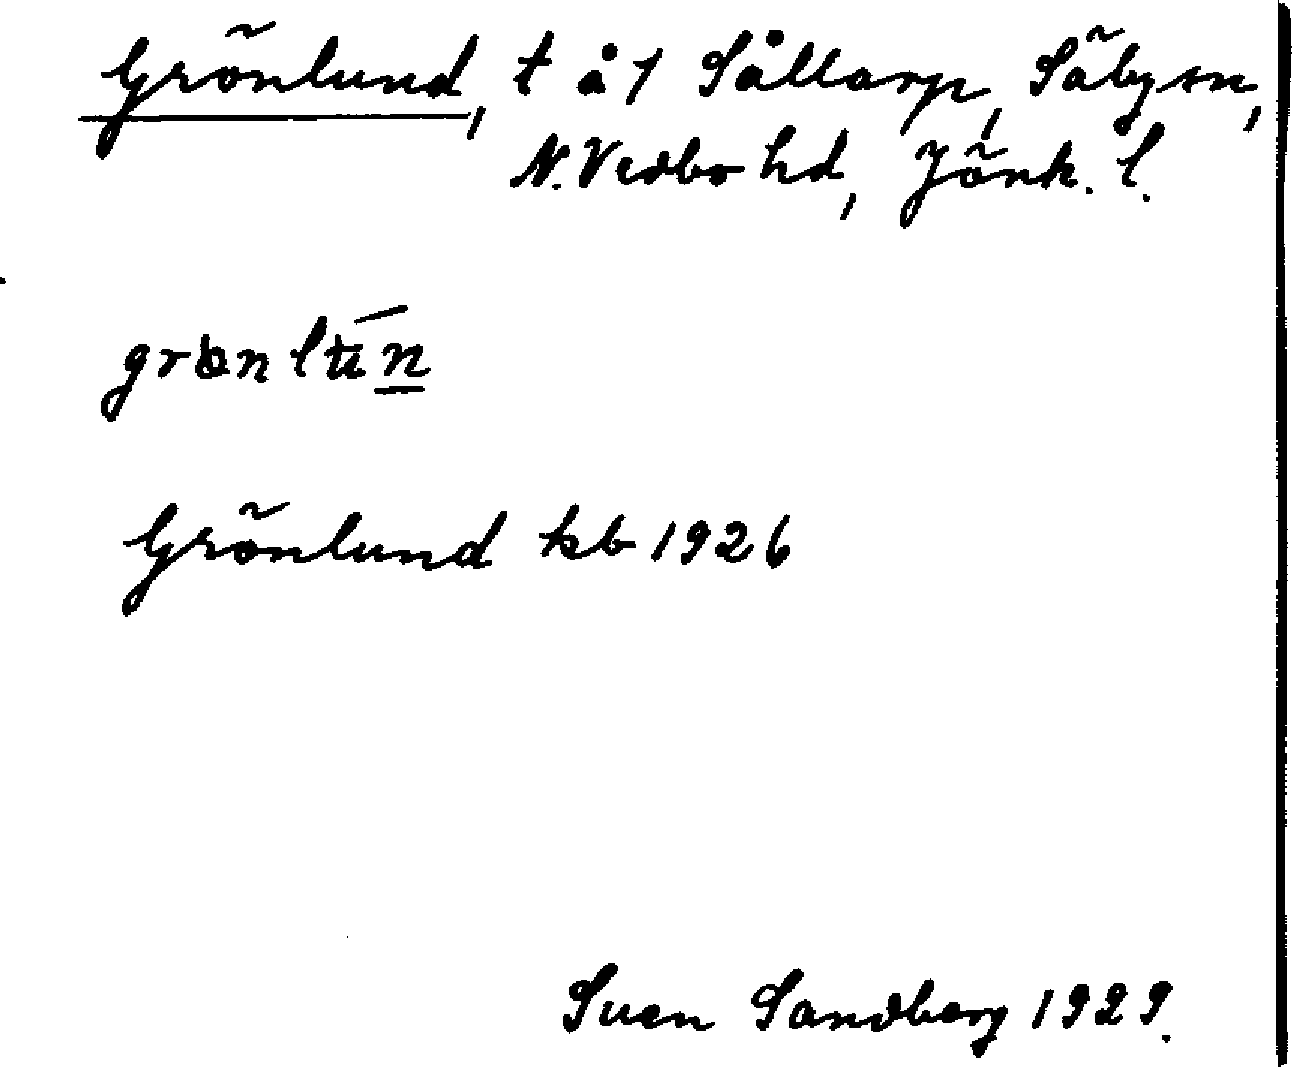 Grönlund, t å 1 Sållarp, Säby sn,
N. Vedbo hd, Jönk. l.
Grönlund kb 1926
Sven Sandberg 1929.